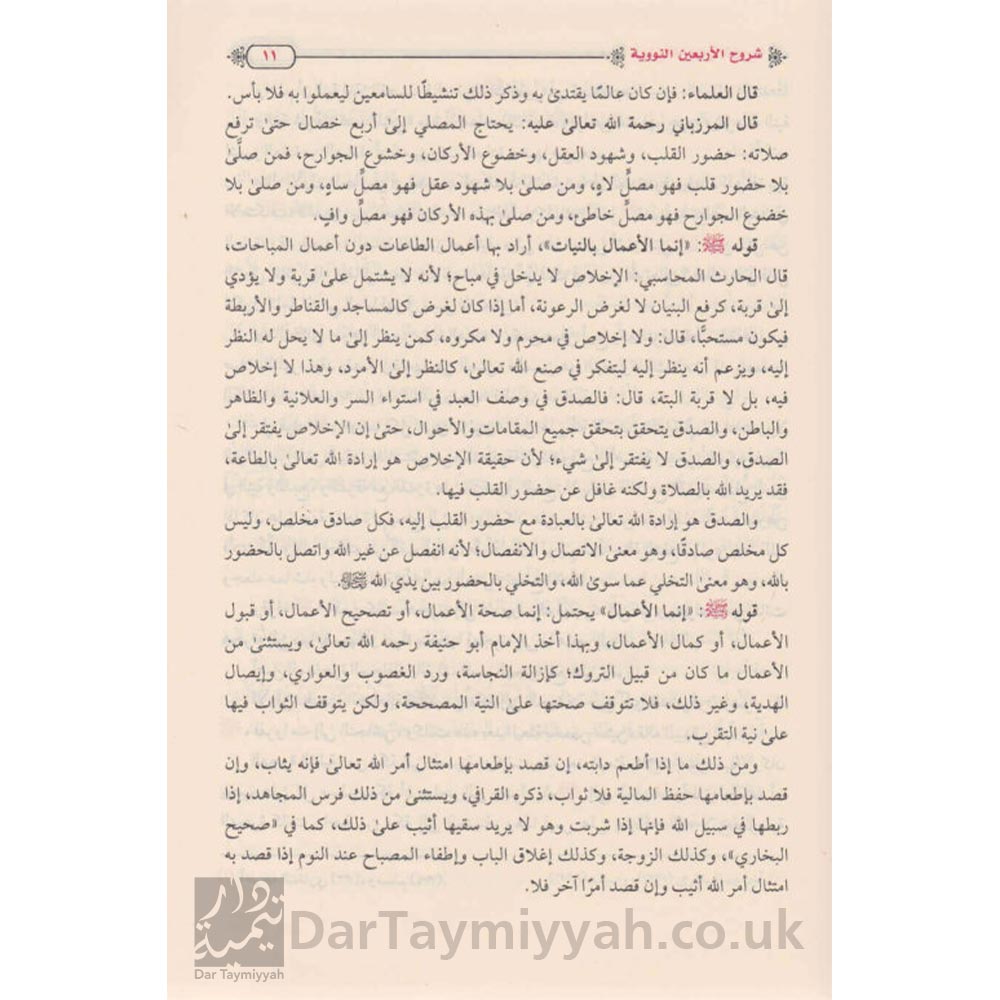 شروح الأربعين النووية
١١
قال العلماء: فإن كان عالمًا يقتدىٰ به وذكر ذلك تنشيطًا للسامعين ليعملوا به فلا بأس.
قال المرزباني رحمة الله تعالىٰ عليه: يحتاج المصلي إلىٰ أربع خصال حتىٰ ترفع
صلاته: حضور القلب، وشهود العقل، وخضوع الأركان، وخشوع الجوارح، فمن صلَّىٰ
بلا حضور قلب فهو مصلٍّ لاهٍ، ومن صلىٰ بلا شهود عقل فهو مصلٍّ ساهٍ، ومن صلىٰ بلا
خضوع الجوارح فهو مصلٍّ خاطئ، ومن صلىٰ بهذه الأركان فهو مصلٍّ وافٍ.
قوله ﷺ: «إنما الأعمال بالنيات»، أراد بها أعمال الطاعات دون أعمال المباحات،
قال الحارث المحاسبي: الإخلاص لا يدخل في مباح؛ لأنه لا يشتمل علىٰ قربة ولا يؤدي
إلىٰ قربة، كرفع البنيان لا لغرض الرعونة، أما إذا كان لغرض كالمساجد والقناطر والأربطة
فيكون مستحبًّا، قال: ولا إخلاص في محرم ولا مكروه، كمن ينظر إلىٰ ما لا يحل له النظر
إليه، ويزعم أنه ينظر إليه ليتفكر في صنع الله تعالىٰ، كالنظر إلىٰ الأمرد، وهذا لا إخلاص
فيه، بل لا قربة البتة، قال: فالصدق في وصف العبد في استواء السر والعلانية والظاهر
والباطن، والصدق يتحقق بتحقق جميع المقامات والأحوال، حتىٰ إن الإخلاص يفتقر إلىٰ
الصدق، والصدق لا يفتقر إلىٰ شيء؛ لأن حقيقة الإخلاص هو إرادة الله تعالىٰ بالطاعة،
فقد يريد الله بالصلاة ولكنه غافل عن حضور القلب فيها.
والصدق هو إرادة الله تعالىٰ بالعبادة مع حضور القلب إليه، فكل صادق مخلص، وليس
كل مخلص صادقًا، وهو معنىٰ الاتصال والانفصال؛ لأنه انفصل عن غير الله واتصل بالحضور
بالله، وهو معنىٰ التخلي عما سوىٰ الله، والتخلي بالحضور بين يدي الله ﷻ.
قوله ﷺ: «إنما الأعمال» يحتمل: إنما صحة الأعمال، أو تصحيح الأعمال، أو قبول
الأعمال، أو كمال الأعمال، وبهذا أخذ الإمام أبو حنيفة رحمه الله تعالىٰ، ويستثنىٰ من
الأعمال ما كان من قبيل التروك؛ كإزالة النجاسة، ورد الغصوب والعواري، وإيصال
الهدية، وغير ذلك، فلا تتوقف صحتها علىٰ النية المصححة، ولكن يتوقف الثواب فيها
علىٰ نية التقرب.
ومن ذلك ما إذا أطعم دابته، إن قصد بإطعامها امتثال أمر الله تعالىٰ فإنه يثاب، وإن
قصد بإطعامها حفظ المالية فلا ثواب، ذكره القرافي، ويستثنىٰ من ذلك فرس المجاهد، إذا
ربطها في سبيل الله فإنها إذا شربت وهو لا يريد سقيها أثيب علىٰ ذلك، كما في «صحيح
البخاري»، وكذلك الزوجة، وكذلك إغلاق الباب وإطفاء المصباح عند النوم إذا قصد به
امتثال أمر الله أثيب وإن قصد أمرًا آخر فلا.
دار تيمية
Dar Taymiyyah
DarTaymiyyah.co.uk